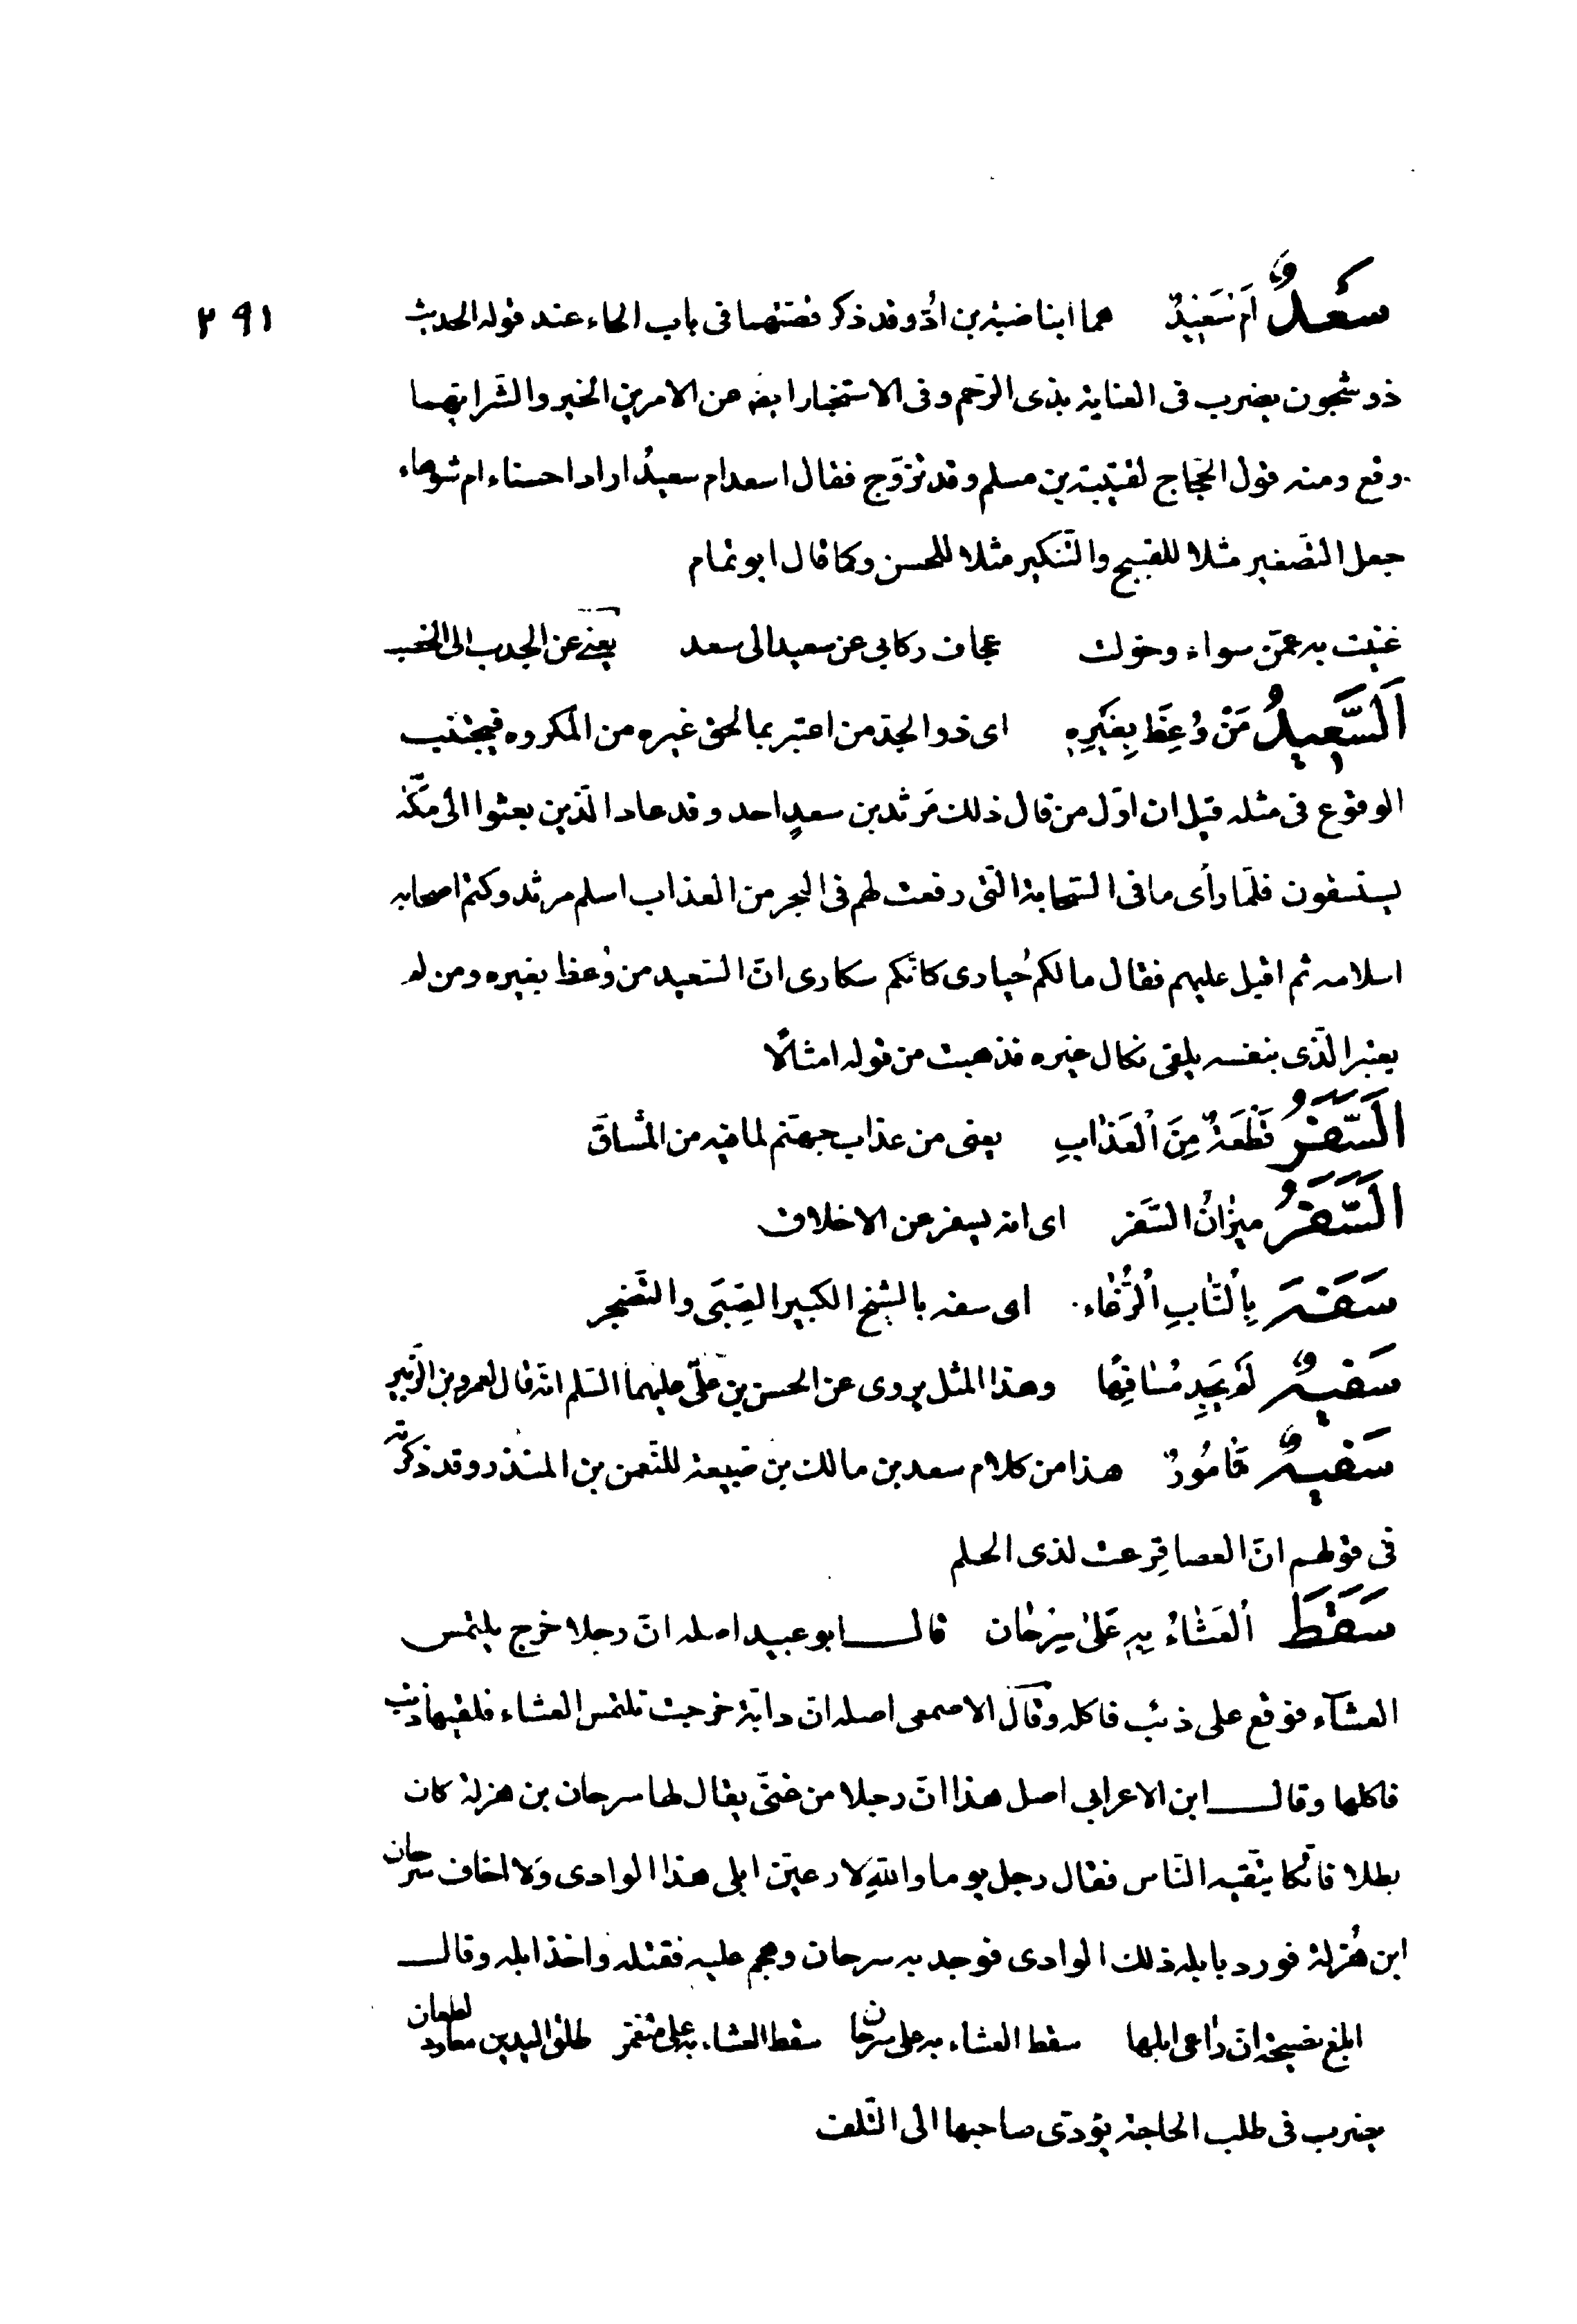 ٢٩١
سَعْدٌ اَمْ سُعَيْدٌ هما ابنا ضبة بن ادّ وقد ذكر قصتهما فى باب الحاء عند قوله الحديث
ذو شجون يضرب فى العناية بذى الرّحم وفى الاستخبار ايضه عن الامرين الخير والشّر ايهما
وقع ومنه قول الحجّاج لقتيبة بن مسلم وقد تزوّج فقال اسعد ام سعيدٌ اراد احسناء ام شوهاء
جعل التّصغير مثلا للقبيح والتّنكير مثلا للحسن وكما قال ابو تمام
غنيت به عمّن سواه وحوّلت عجاف ركابى عن سعيد الى سعد يعنى عن الجدب الى الخصب
اَلسَّعِيدُ مَنْ وُعِظَ بِغَيْرِهِ اى ذو الجدّ من اعتبر بما لحق غيره من المكروه فيجتنب
الوقوع فى مثله قيل ان اوّل من قال ذلك مَرثد بن سعدٍ احد وفد عاد الّذين بعثوا الى مكّة
يستسقون فلمّا راى ما فى السّحابة الّتى رفعت لهم فى البحر من العذاب اسلم مرثد وكتم اصحابه
اسلامه ثم اقبل عليهم فقال مالكم حُيارى كانّكم سكارى انّ السّعيد من وُعظ بغيره ومن لم
يعتبر الّذى بنفسه يلقى نكال غيره فذهبت من قوله امثالًا
اَلسَّفَرُ قِطْعَةٌ مِنَ الْعَذَابِ يعنى من عذاب جهنّم لما فيه من المشاقّ
اَلسَّفَرُ ميزَانُ السَّفَر اى انه يسفر عن الاخلاق
سَفَهَ بِالنَّابِ الرُّغَاء اى سفه بالشيخ الكبير الصِّبَى والتّضجر
سَفِيهٌ لَمْ يَجِدْ مُسَافِهًا وهذا المثل يروى عن الحسن بن علىّ عليهما السّلم انّه قال لعمرو بن الزّبير
سَفِيهٌ مَأمُورٌ هذا من كلام سعد بن مالك بن ضبيعة للنّعمن بن المنذر وقد ذكرته
فى قولهم انّ العصا قرعت لذى الحلم
سَقَطَ الْعَشَاءُ بِهِ عَلَى سِرْحَان قال ابو عبيد اصله انّ رجلا خرج يلتمس
العشآء فوقع على ذئب فاكله وقال الاصمعى اصله انّ دابّة خرجت تلتمس العشاء فلقيها ذئب
فاكلها وقال ابن الاعرابى اصل هذا انّ رجلا من غنىّ يقال لها سرحان بن هزلة كان
بطلا فاتكا يتّقيه النّاس فقال رجل يوما واللّهِ لارعينّ ابلى هذا الوادى ولا اخاف سرحان
ابن هُزلة فورد بابله ذلك الوادى فوجد به سرحان وهجم عليه فقتله واخذ ابله وقال
ابلغ نصيحة انّ راعى ابلها سقط العشاء به على سرحان سقط العشاء به على متقمّر طلق اليدين معاود لطعان
يضرب فى طلب الحاجة يؤدّى صاحبها الى التّلف